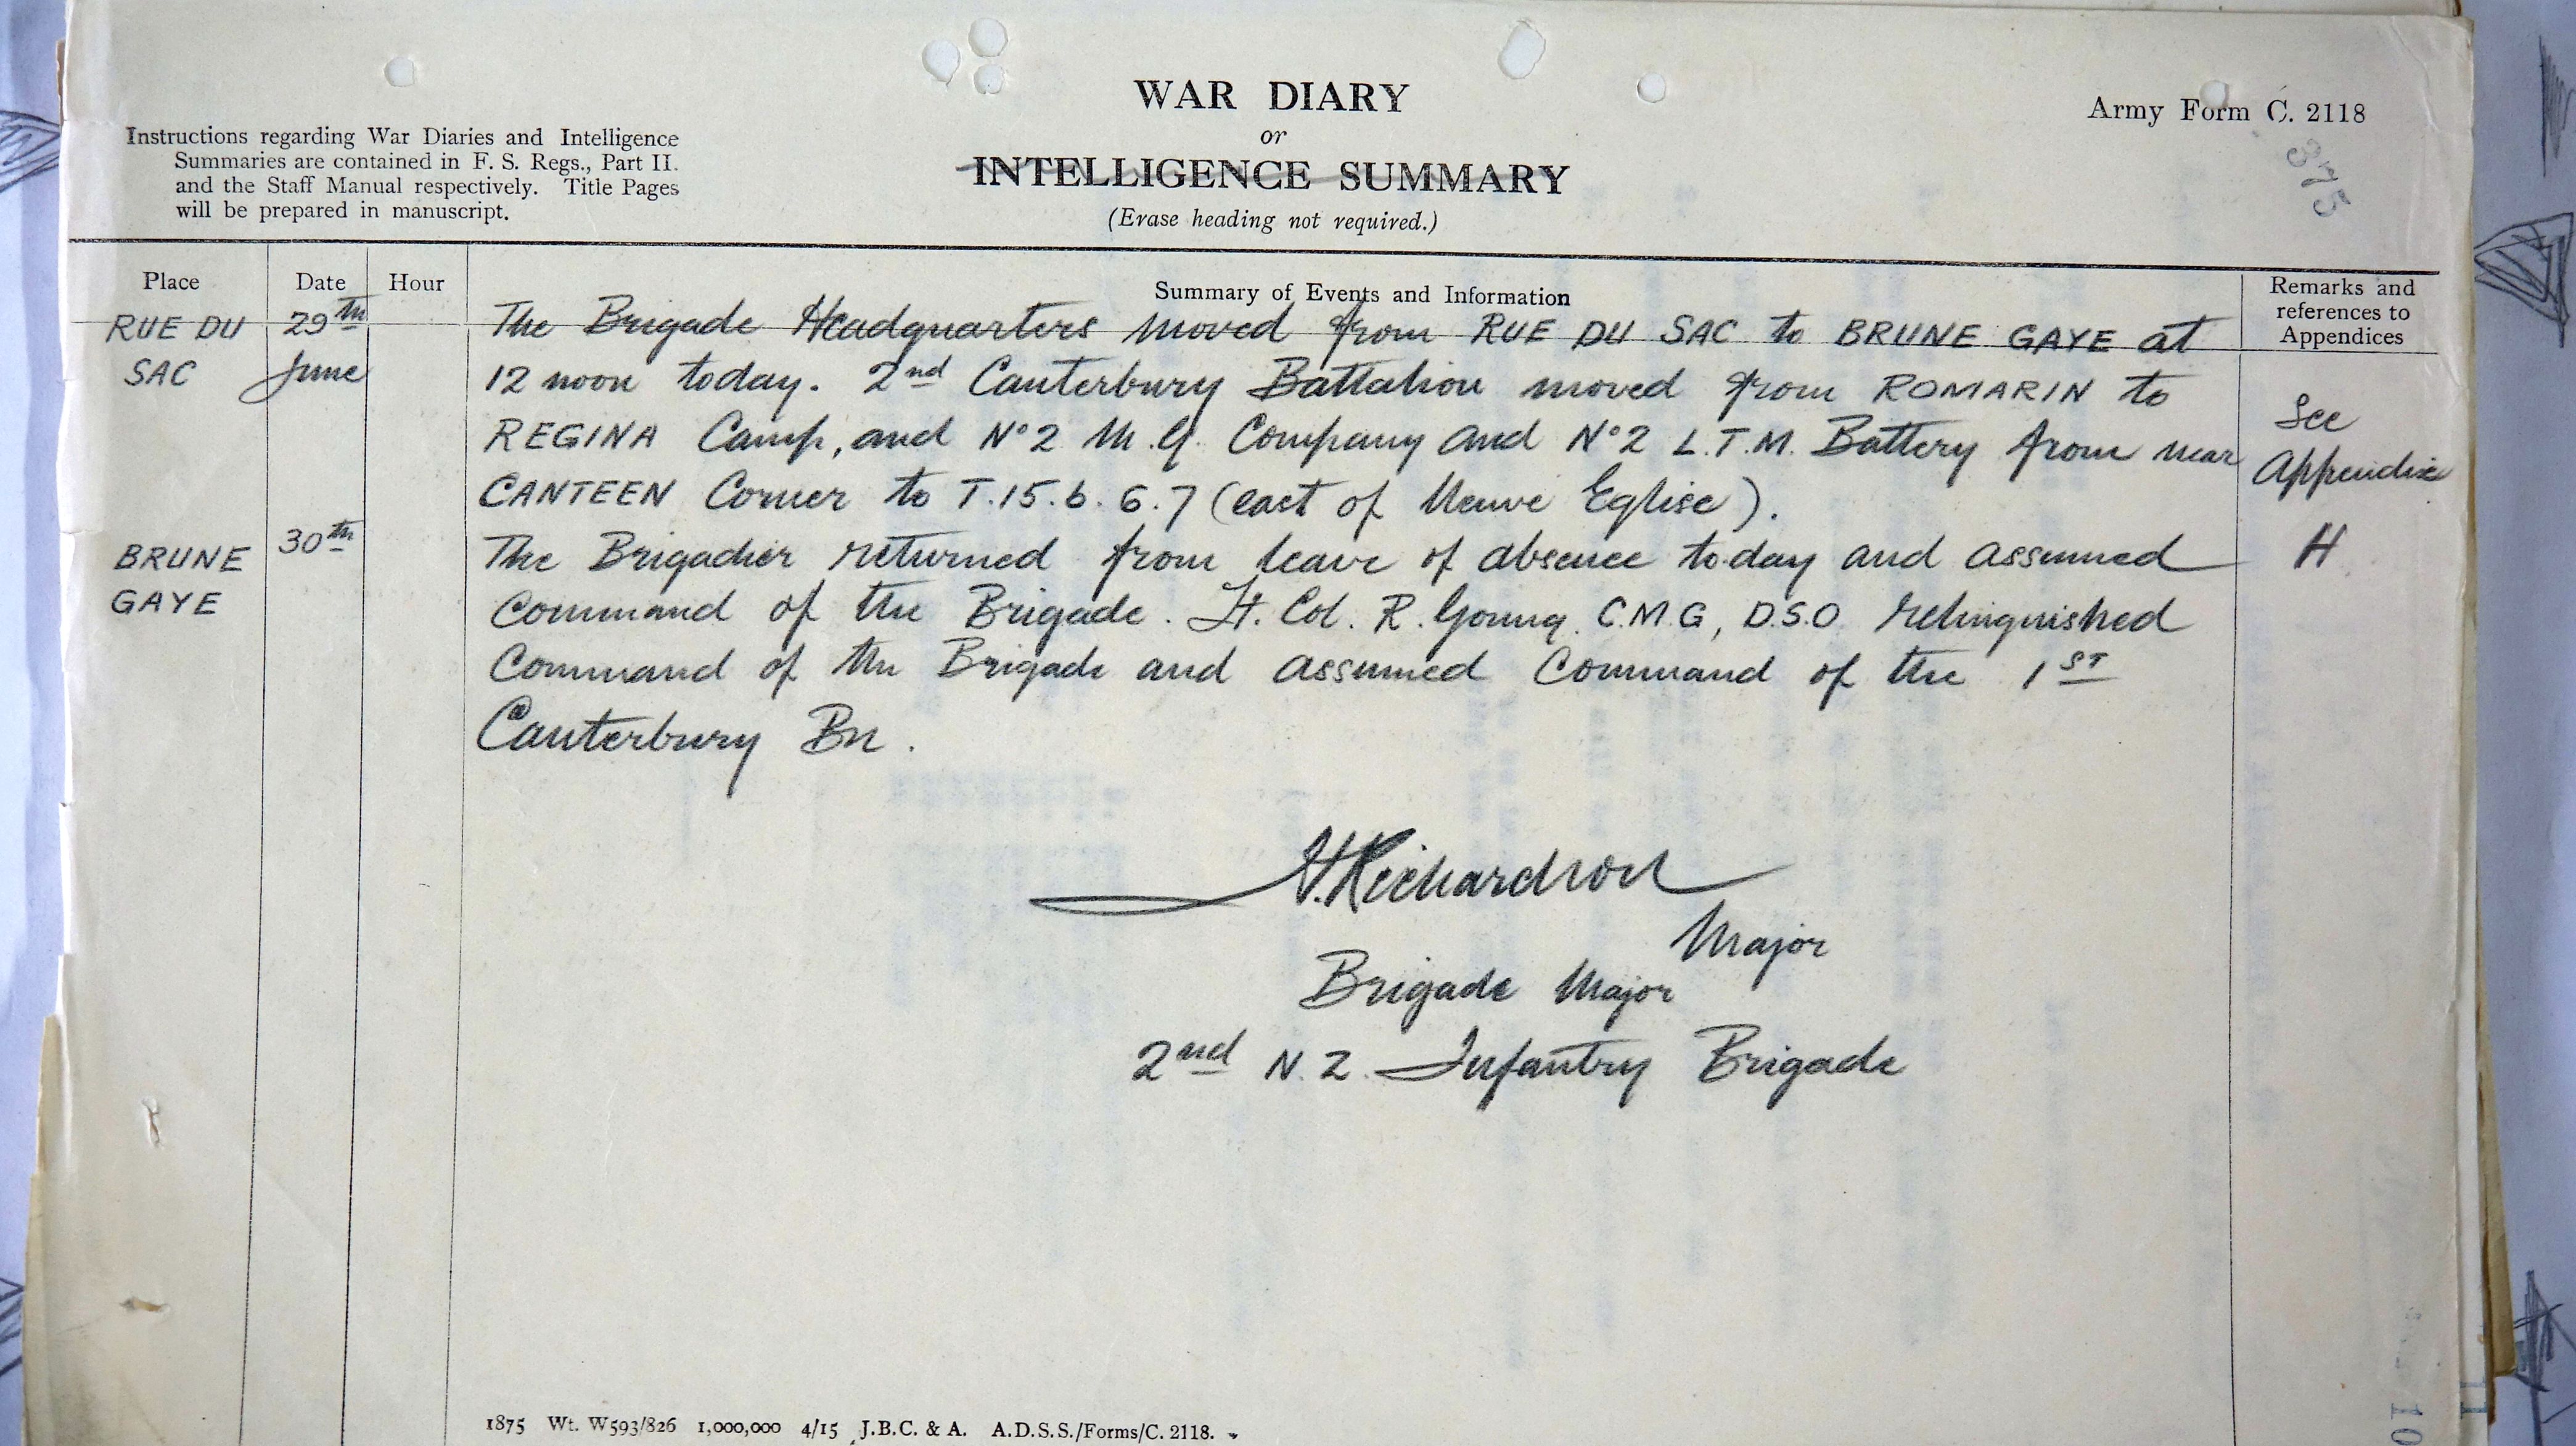 WAR DIARY
or
INTELLIGENCE SUMMARY
(Erase heading not required.)
Army Form C. 2118
375
Instructions regarding War Diaries and Intelligence
Summaries are contained in F. S. Regs., Part II.
and the Staff Manual respectively. Title Pages
will be prepared in manuscript.
Place Date Hour Summary of Events and Information Remarks and references to Appendices
RUE DU 29th The Brigade Headquarters moved from RUE DU SAC to BRUNE GAYE at
SAC June 12 noon today. 2nd Canterbury Battalion moved from ROMARIN to
REGINA Camp, and No 2 M.G. Company and No 2 L.T.M. Battery from near
CANTEEN Corner to T.15.b.6.7 (east of Neuve Eglise).
See
Appendix
H
BRUNE 30th The Brigadier returned from leave of absence today and assumed
GAYE Command of the Brigade. Lt. Col. R. Young. C.M.G, D.S.O relinquished
Command of the Brigade and assumed Command of the 1ST
Canterbury Bn.
H.Richardson
Major
Brigade Major
2nd N.Z. Infantry Brigade
1875 Wt. W593/826 1,000,000 4/15 J.B.C. & A. A.D.S.S./Forms/C. 2118.